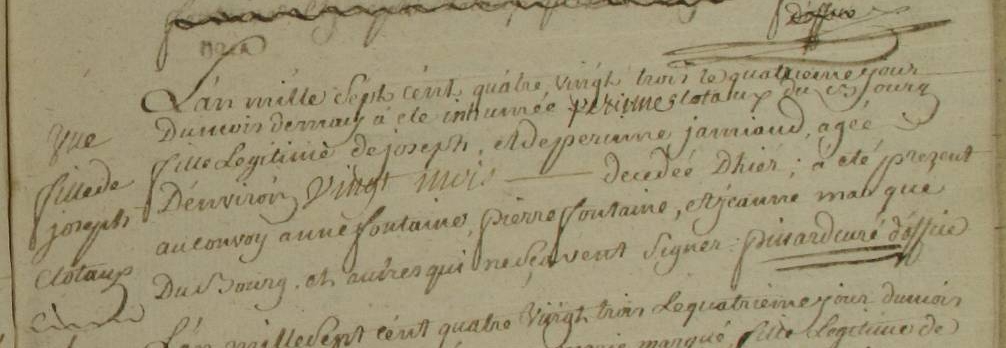 D'offrie
L'an mille Sept cent quatre vingt trois le quatrieme jour
Du mois de may a eté inhumée perinne clotaux du Bourg
fille Legitime de joseph, et de perrinne jamiaud, agée
D'environ vingt mois decedée D'hier; a eté present
au convoy anne fontaine, pierre fontaine, et jeanne marque
Du Bourg, et autres qui ne sçavent signer: pinard curé d'offrie
Une
fille de
joseph
clotaux
L'an mille Sept cent quatre vingt trois Le quatrieme jour du mois
marie marqué, fille Legitime de